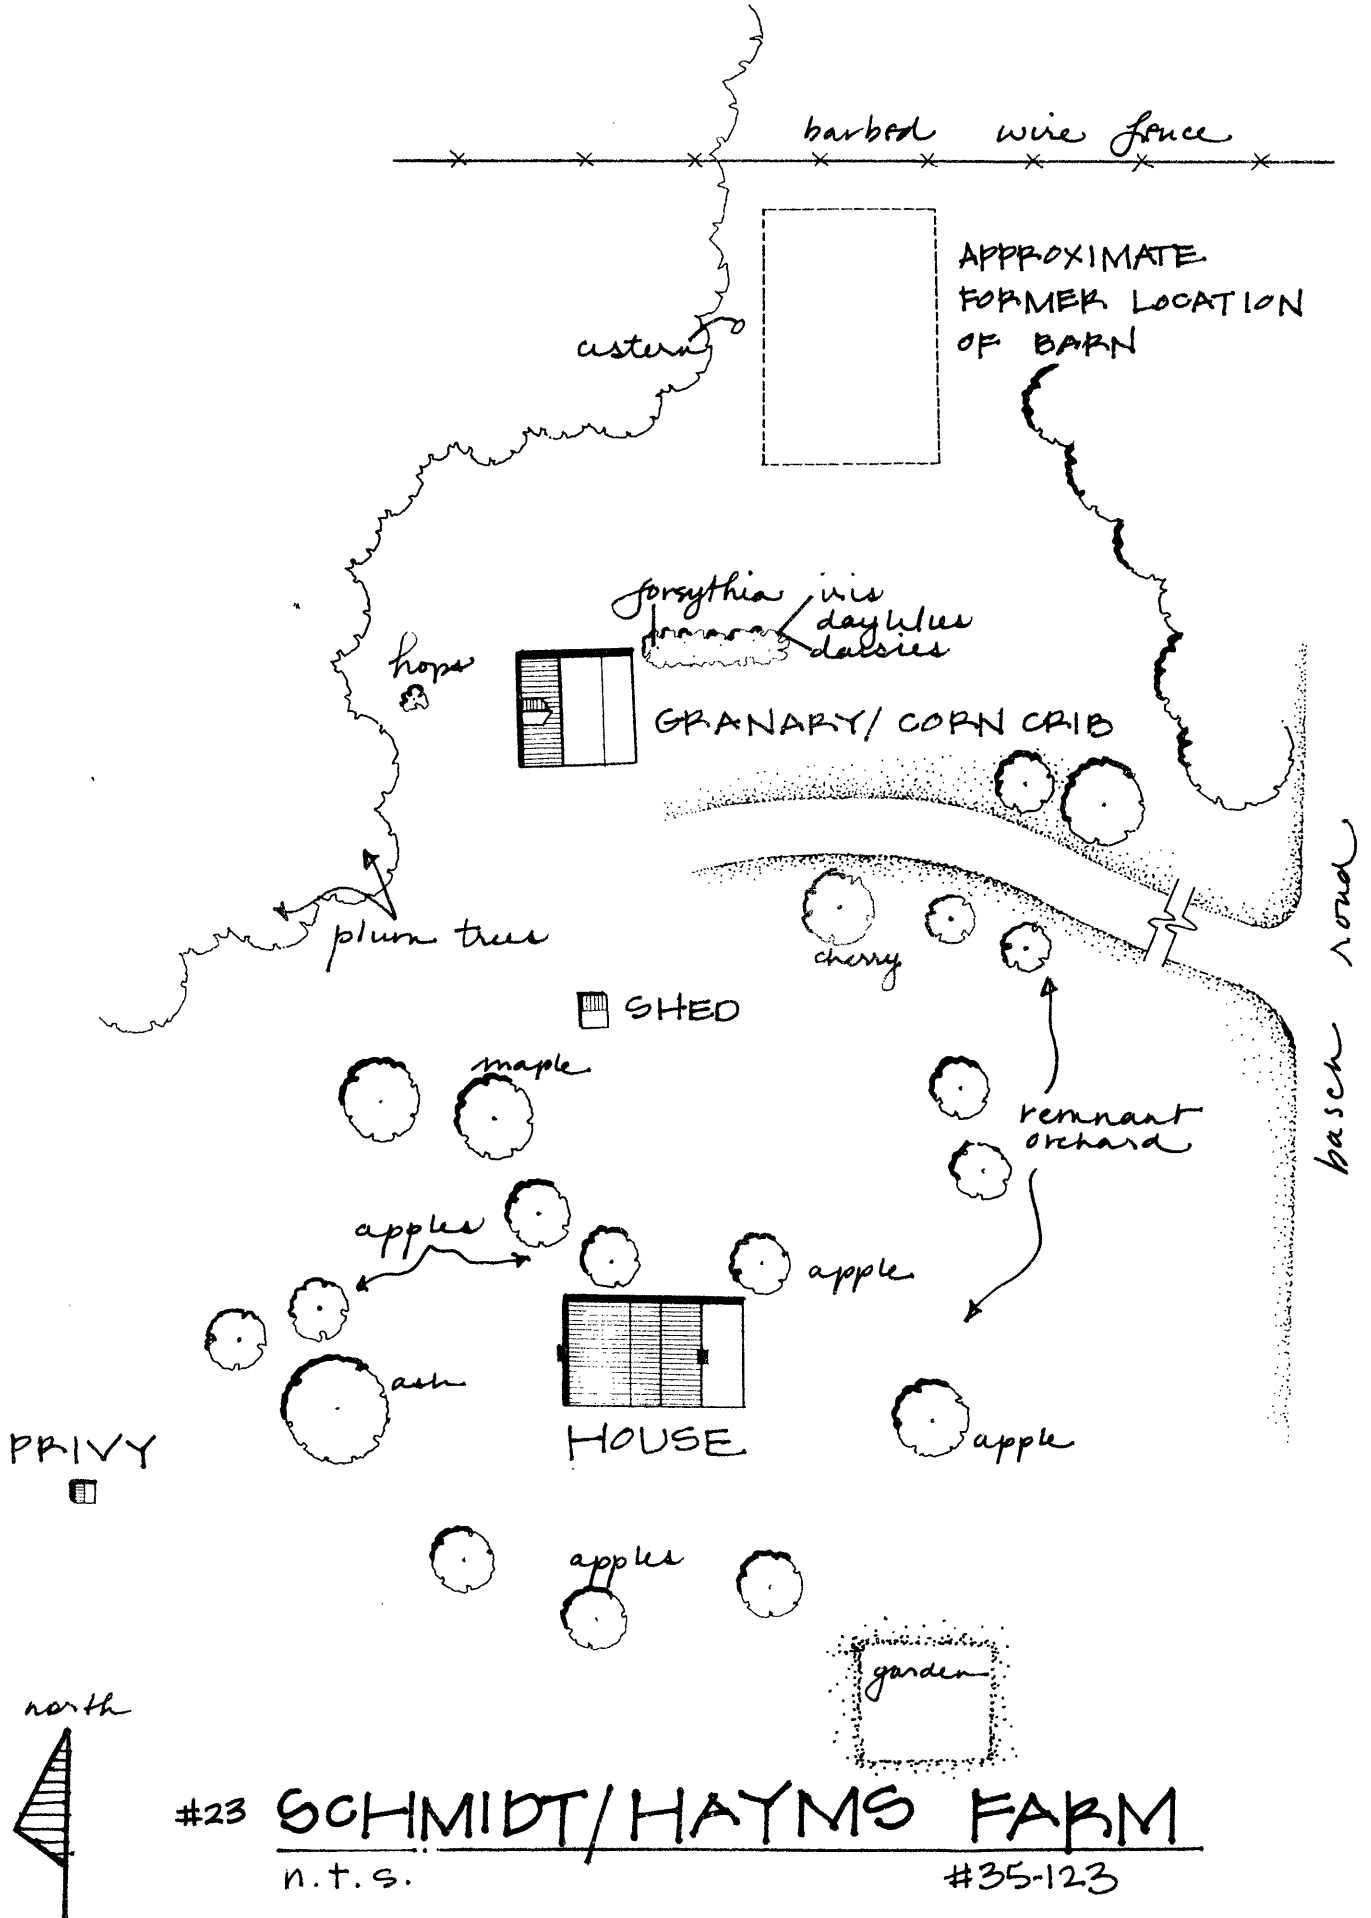 barbed wire fence
APPROXIMATE
FORMER LOCATION
OF BARN
cistern
forsythia
iris
daylilies
daisies
hops
GRANARY/CORN CRIB
plum trees
cherry
basch road
SHED
maple
remnant
orchard
apples
apple
ash
HOUSE
apple
PRIVY
apples
garden
north
#23 SCHMIDT/HAYMS FARM
n.t.s. #35-123